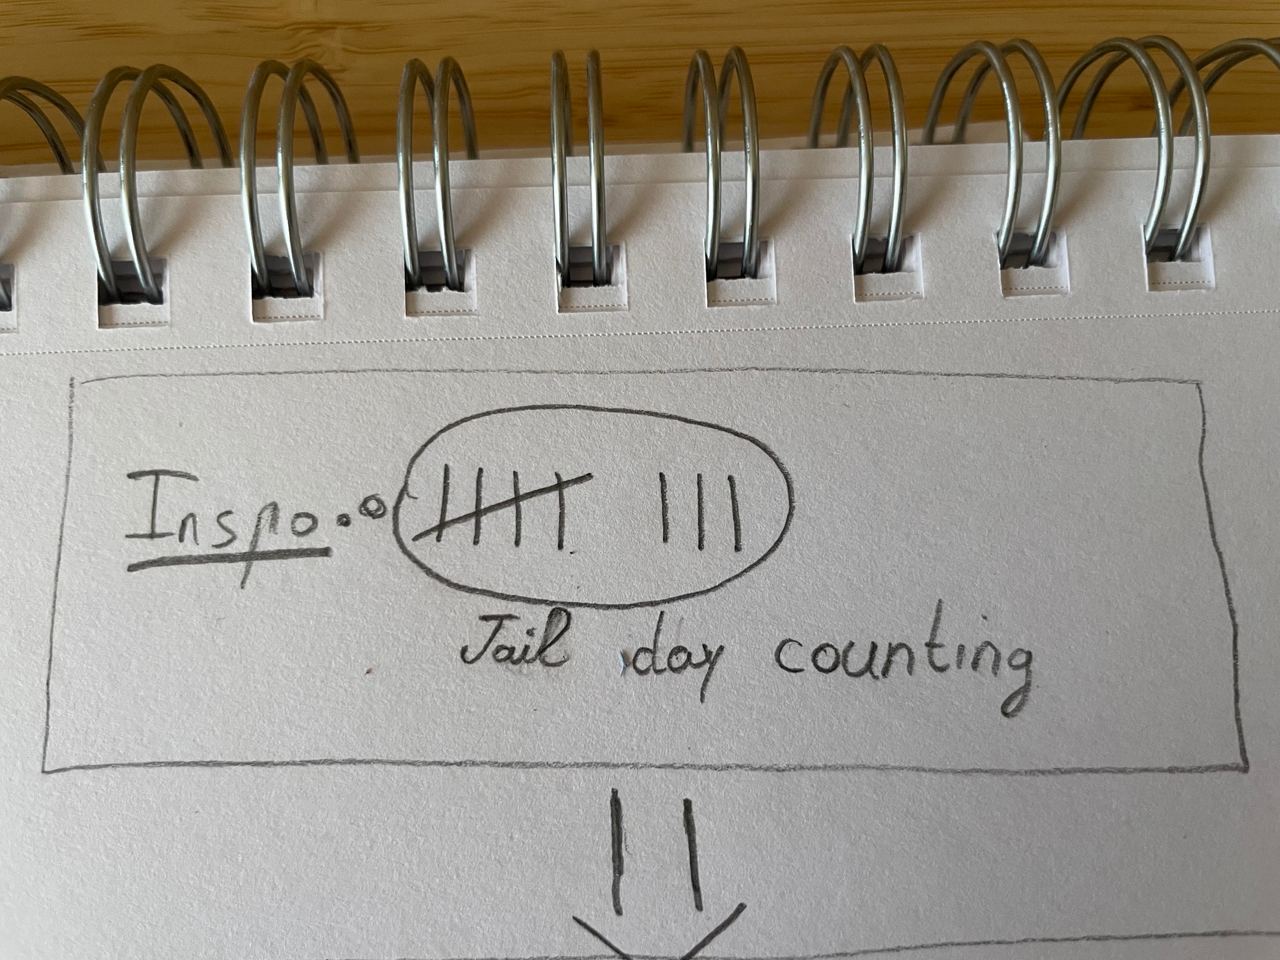 Inspo.
Jail day counting